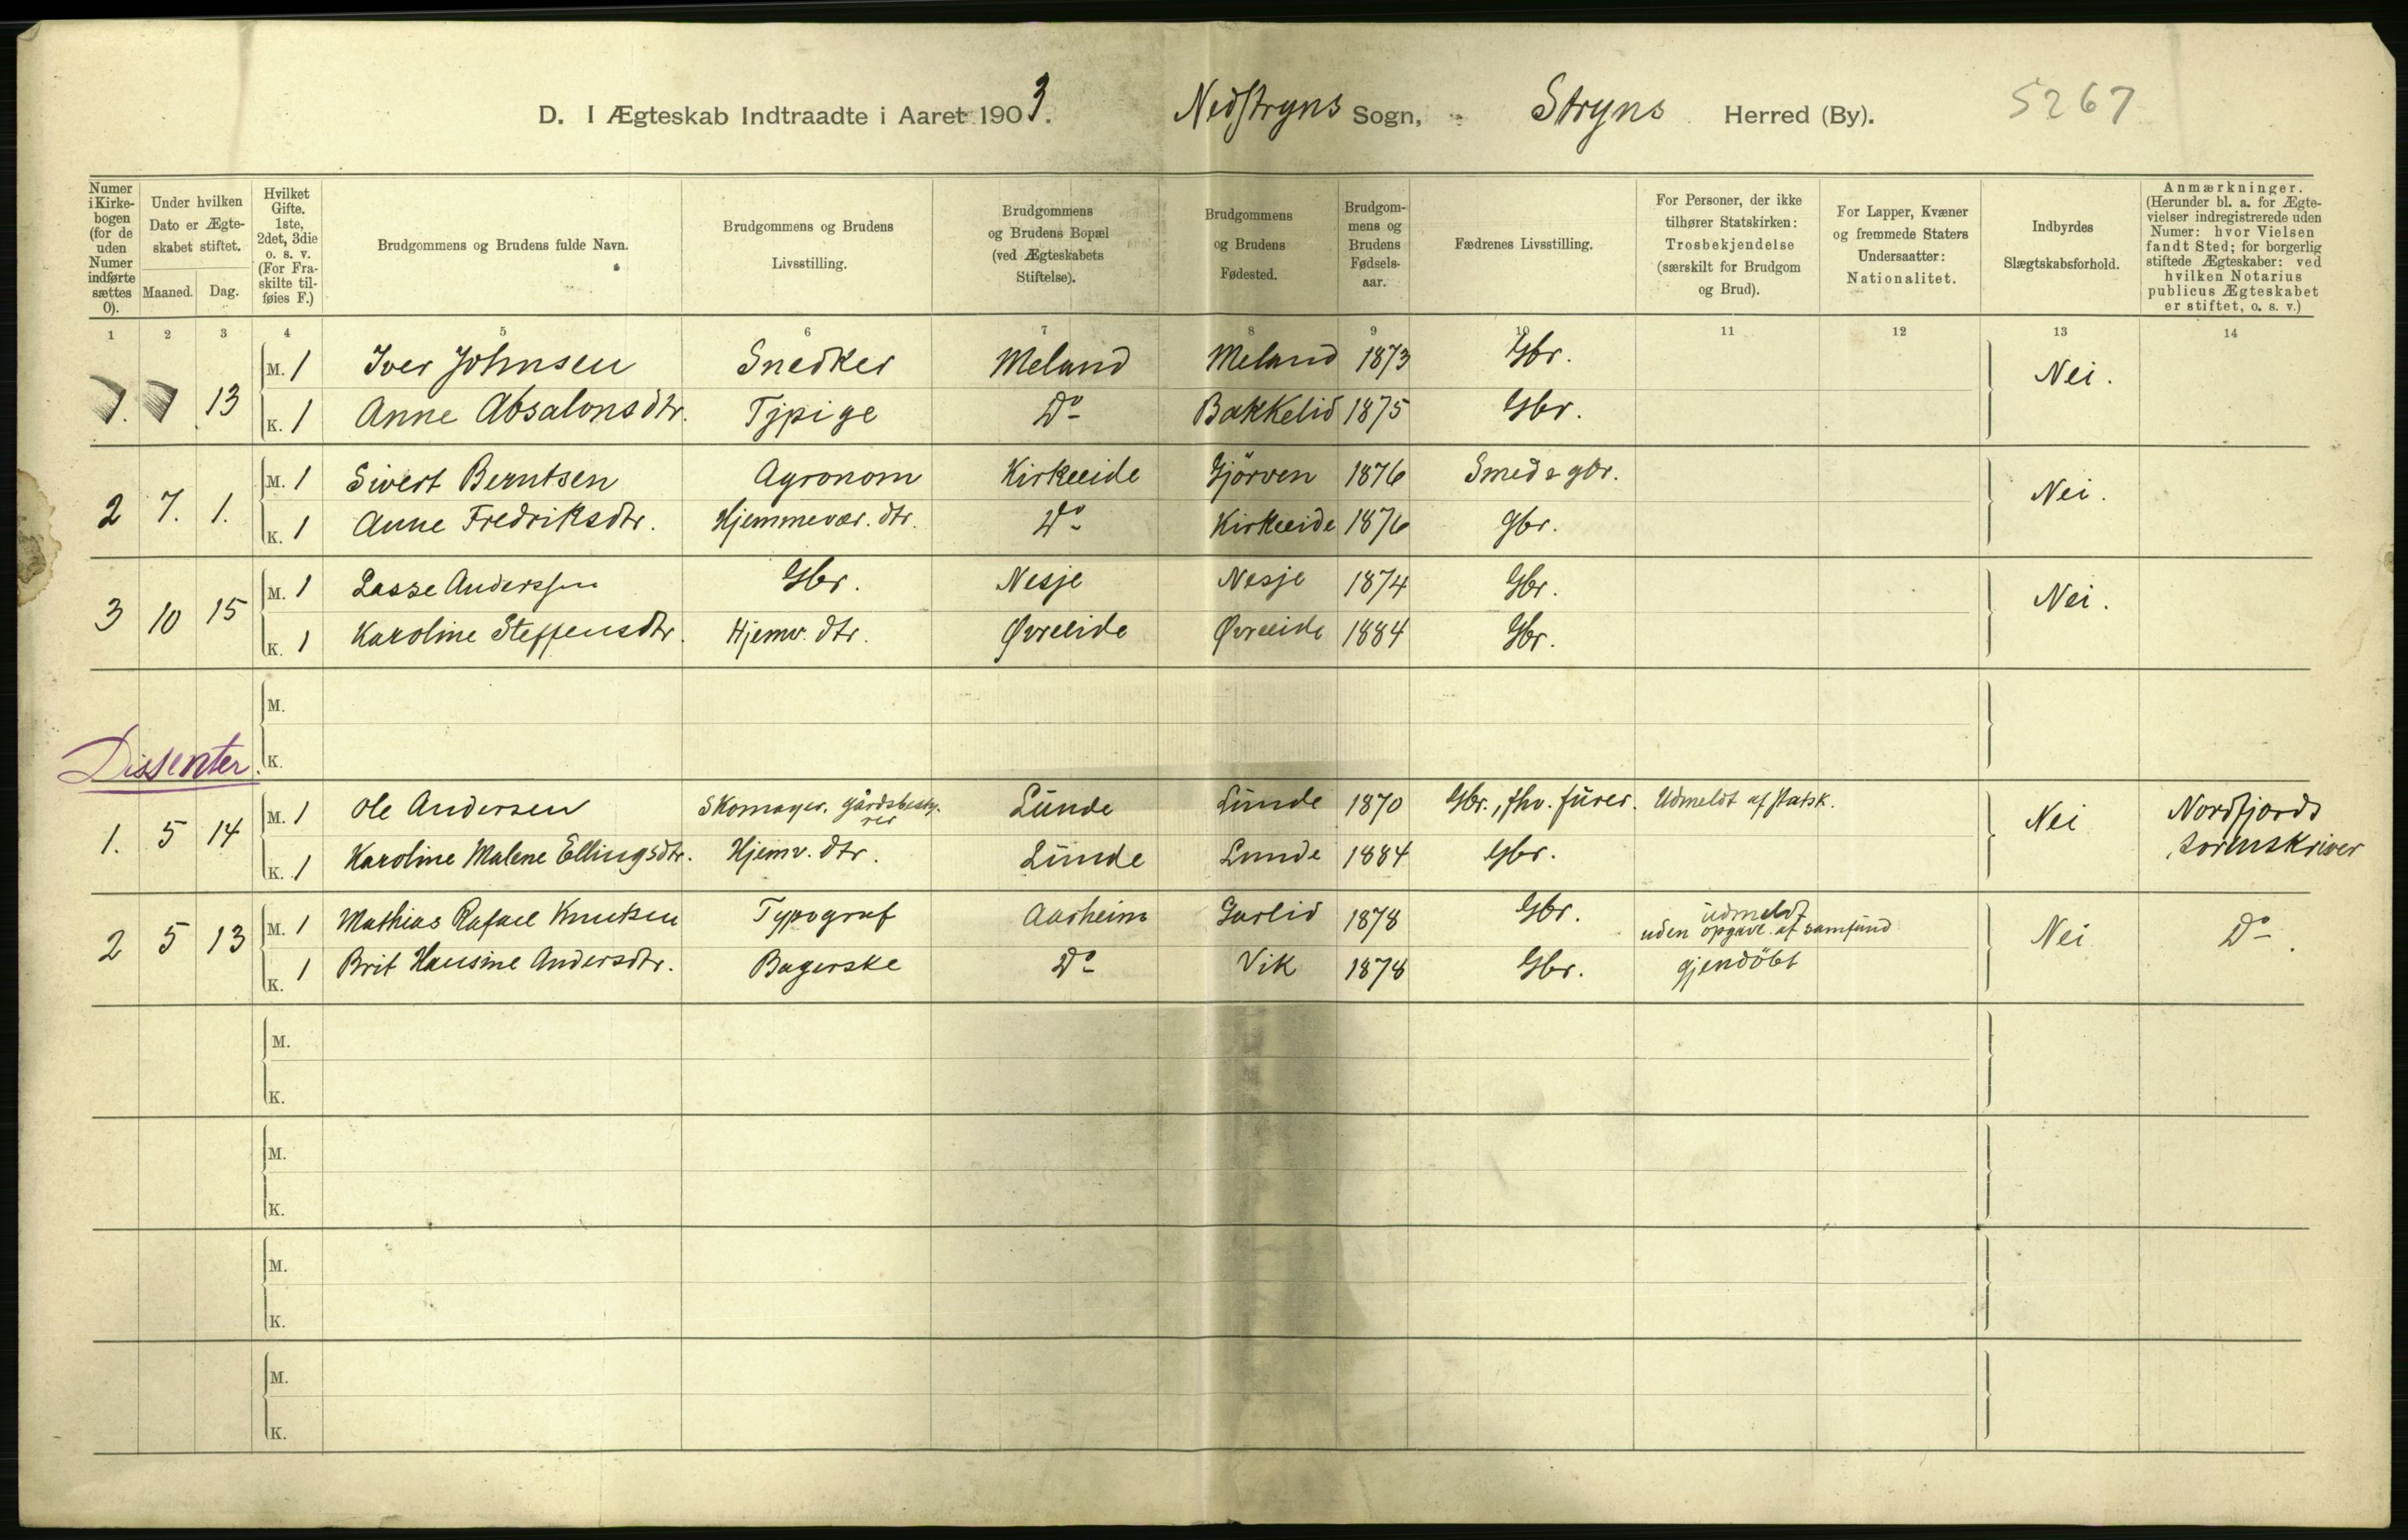 D. I Ægteskab Indtraadte i Aaret 1903. Nedstryns Sogn, Stryns Herred (By). 5267
Numer i Kirkebogen (for de uden Numer indførte sættes 0).
Under hvilken Dato er Ægteskabet stiftet.
Maaned. Dag.
Hvilket Gifte. 1ste, 2det, 3die o. s. v. (For Fraskilte tilføies F.)
Brudgommens og Brudens fulde Navn.
Brudgommens og Brudens Livsstilling.
Brudgommens og Brudens Bopæl (ved Ægteskabets Stiftelse).
Brudgommens og Brudens Fødested.
Brudgommens og Brudens Fødselsaar.
Fædrenes Livsstilling.
For Personer, der ikke tilhører Statskirken: Trosbekjendelse (særskilt for Brudgom og Brud).
For Lapper, Kvæner og fremmede Staters Undersaatter: Nationalitet.
Indbyrdes Slægtskabsforhold.
Anmærkninger. (Herunder bl. a. for Ægtevielser indregistrerede uden Numer: hvor Vielsen fandt Sted; for borgerlig stiftede Ægteskaber: ved hvilken Notarius publicus Ægteskabet er stiftet, o. s. v.)
1 2 3 4 5 6 7 8 9 10 11 12 13 14
13 M. 1 Iver Johnsen Snedker Meland Meland 1873 Gbr. Nei.
K. 1 Anne Absalonsdtr. Tjpige Do Bakkelid 1875 Gbr.
2 7. 1. M. 1 Sivert Berntsen Agronom Kirkeeide Gjörven 1876 Smed & gbr. Nei.
K. 1 Anne Fredriksdtr. Hjemmevær. dtr. Do Kirkeeide 1876 Gbr.
3 10 15 M. 1 Lasse Anderssen Gbr. Nesje Nesje 1874 Gbr. Nei.
K. 1 Karoline Steffensdtr. Hjemv. dtr. Øvreeide Øvreeide 1884 Gbr.
M.
K.
Dissenter.
1. 5 14 M. 1 Ole Andersen Skomager. gårdsbestyrer Lunde Lunde 1870 Gbr., fhv. furer. Udmeldt af statsk. Nei Nordfjords sorenskriver
K. 1 Karoline Malene Ellingsdtr. Hjemv. dtr. Lunde Lunde 1884 Gbr.
2 5 13 M. 1 Mathias Rafael Knutsen Typograf Aarheim Garlid 1878 Gbr. udmeldt uden opgave af samfund Nei Do.
K. 1 Brit Hansine Andersdtr. Bagerske Do Vik 1878 Gbr. gjendöbt
M.
K.
M.
K.
M.
K.
M.
K.